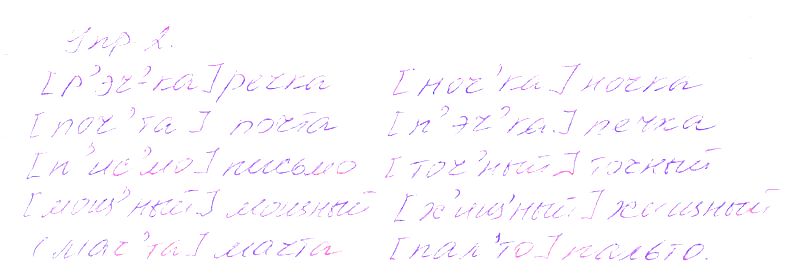 Упр 2.
[р'эч'-ка] речка [ноч'ка] ночка
[поч'та] почта [п'эч'ка] печка
[п'ис'мо] письмо [точ'ный] точный
[мощ'ный] мощный [х'ищ'ный] хищный
[мач'та] мачта [пал'то] пальто.